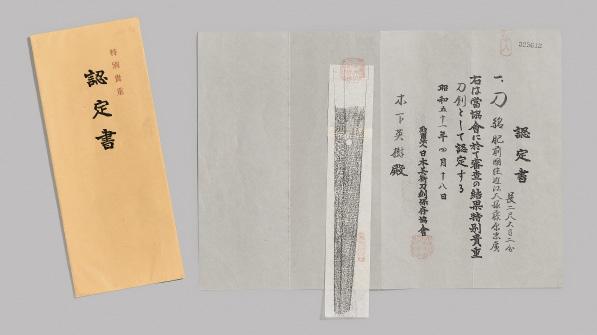 特別貴重
認定書
325612
認定書
一、刀 銘 肥前国住近江大掾藤原忠廣
長二尺六寸二分
右は當協會に於て審査の結果特別貴重
刀剣として認定する
昭和五十一年四月十八日
財団法人日本美術刀剣保存協會
木下英樹殿